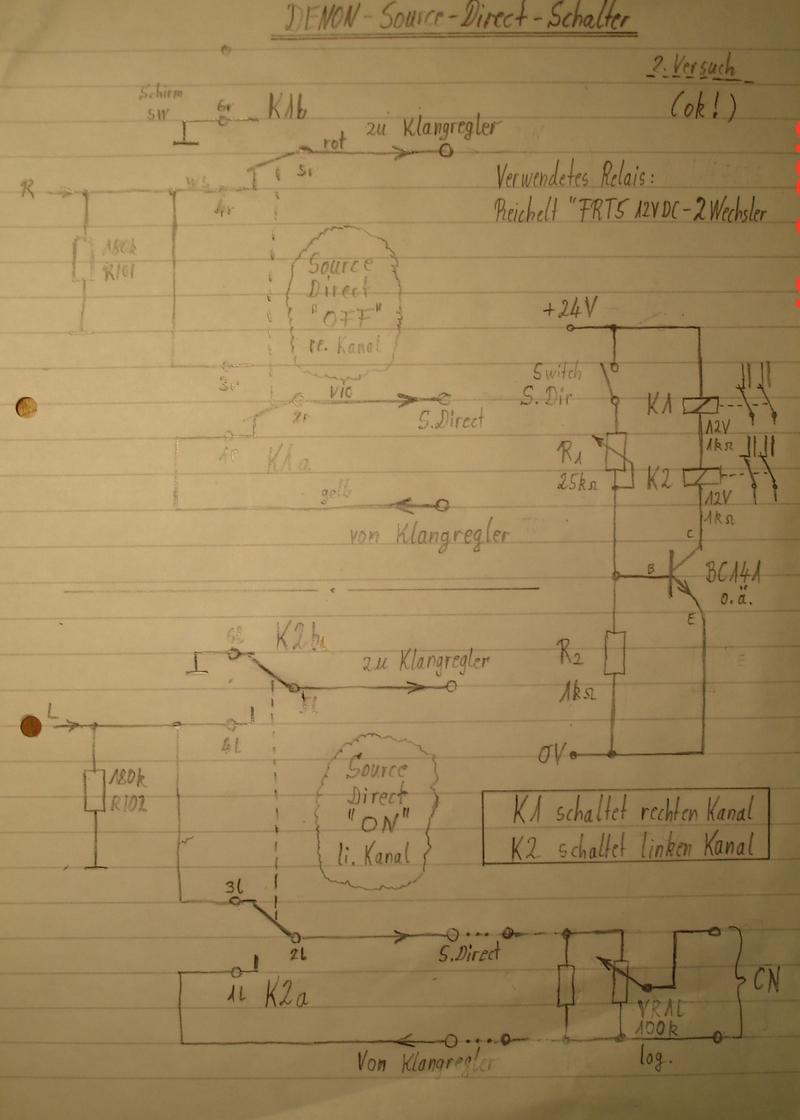 DENON-Source-Direct-Schalter
2. Versuch
(ok!)
Schirm
SW
6r
K1b
zu Klangregler
rot
5r
R
ws
4r
Verwendetes Relais:
Reichelt "FRT5 12VDC-2Wechsler
180k
R101
Source
Direct
"OFF"
re. Kanal
+24V
3r
vio
2r
S.Direct
Switch
S.Dir
K1
12V
1kΩ
1r
K1a
R1
25kΩ
K2
12V
1kΩ
gelb
von Klangregler
C
B
BC141
o.ä.
E
6l
K2b
zu Klangregler
5l
R2
1kΩ
L
4l
0V
180k
R102
Source
Direct
"ON"
li. Kanal
K1 schaltet rechten Kanal
K2 schaltet linken Kanal
3l
2l
S.Direct
1l
K2a
VR1L
100k
log.
CN
Von Klangregler